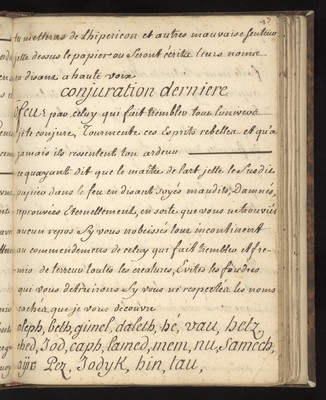 tu mettras de l'hipericon et autres mauvaise senteur
jette dessus le papier ou seront écrits leurs noms
en disant a haute voix
conjuration derniere
ô feu par celuy qui fait trembler tout l'univers
je te conjure, Tourmente ces Esprits rebelles et qu'a
jamais ils ressentent ton ardeur
ce quayant dit que le maitre de l'art jette les susdis
papiers dans le feu en disant soyés maudits, Damnés,
reprouvés Eternellement, en sorte que vous ne trouviés
aucun repos sy vous nobeissés tout incontinent
au commendement de celuy qui fait trembler et fre-
mir de terreur toutes les creatures, Evités les foudres
qui vous detruirons sy vous ne respectés les noms
cachés que je vous decouvre
aleph, beth, gimel, daleth, hé, vau, hetz,
ched, Jod, caph, lamed, mem, nu, Samech,
Pez, Jodyk, hin, tau,